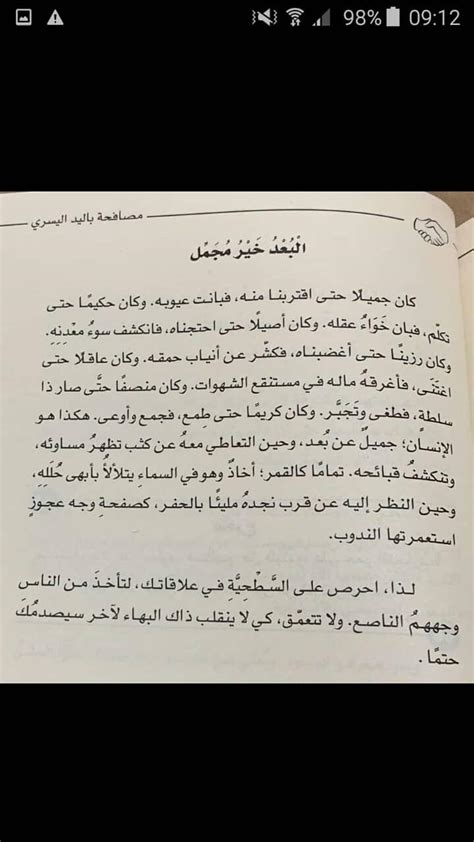 98% 09:12
مصافحة باليد اليسري
الْبُعْدُ خَيْرُ مُجَمِّل
كان جميلا حتى اقتربنا منه، فبانت عيوبه. وكان حكيمًا حتى
تكلّم، فبان خَوَاءُ عقله. وكان أصيلًا حتى احتجناه، فانكشف سوءُ معْدنِهِ.
وكان رزينًا حتى أغضبناه، فكشّر عن أنياب حمقه. وكان عاقلا حتى
اغتَنَى، فأغرقهُ ماله في مستنقع الشهوات. وكان منصفًا حتَّى صار ذا
سلطة، فطغى وتَجَبَّر. وكان كريمًا حتى طمِع، فجمع وأوعى. هكذا هو
الإنسان؛ جميلٌ عن بُعد، وحين التعاطي معهُ عن كثب تظهرُ مساوئه،
وتنكشفُ قبائحه. تمامًا كالقمر؛ أخاذٌ وهو في السماءِ يتلألأُ بأبهى حُلَلِهِ،
وحين النظر إليه عن قرب نجدهُ مليئًا بالحفر، كصفحةِ وجه عجوزٍ
استعمرتها الندوب.
لذا، احرص على السَّطْحِيَّةِ في علاقاتك، لتأخذَ من الناس
وجههمُ الناصع. ولا تتعمّق، كي لا ينقلب ذاك البهاء لآخر سيصدمُكَ
حتمًا.